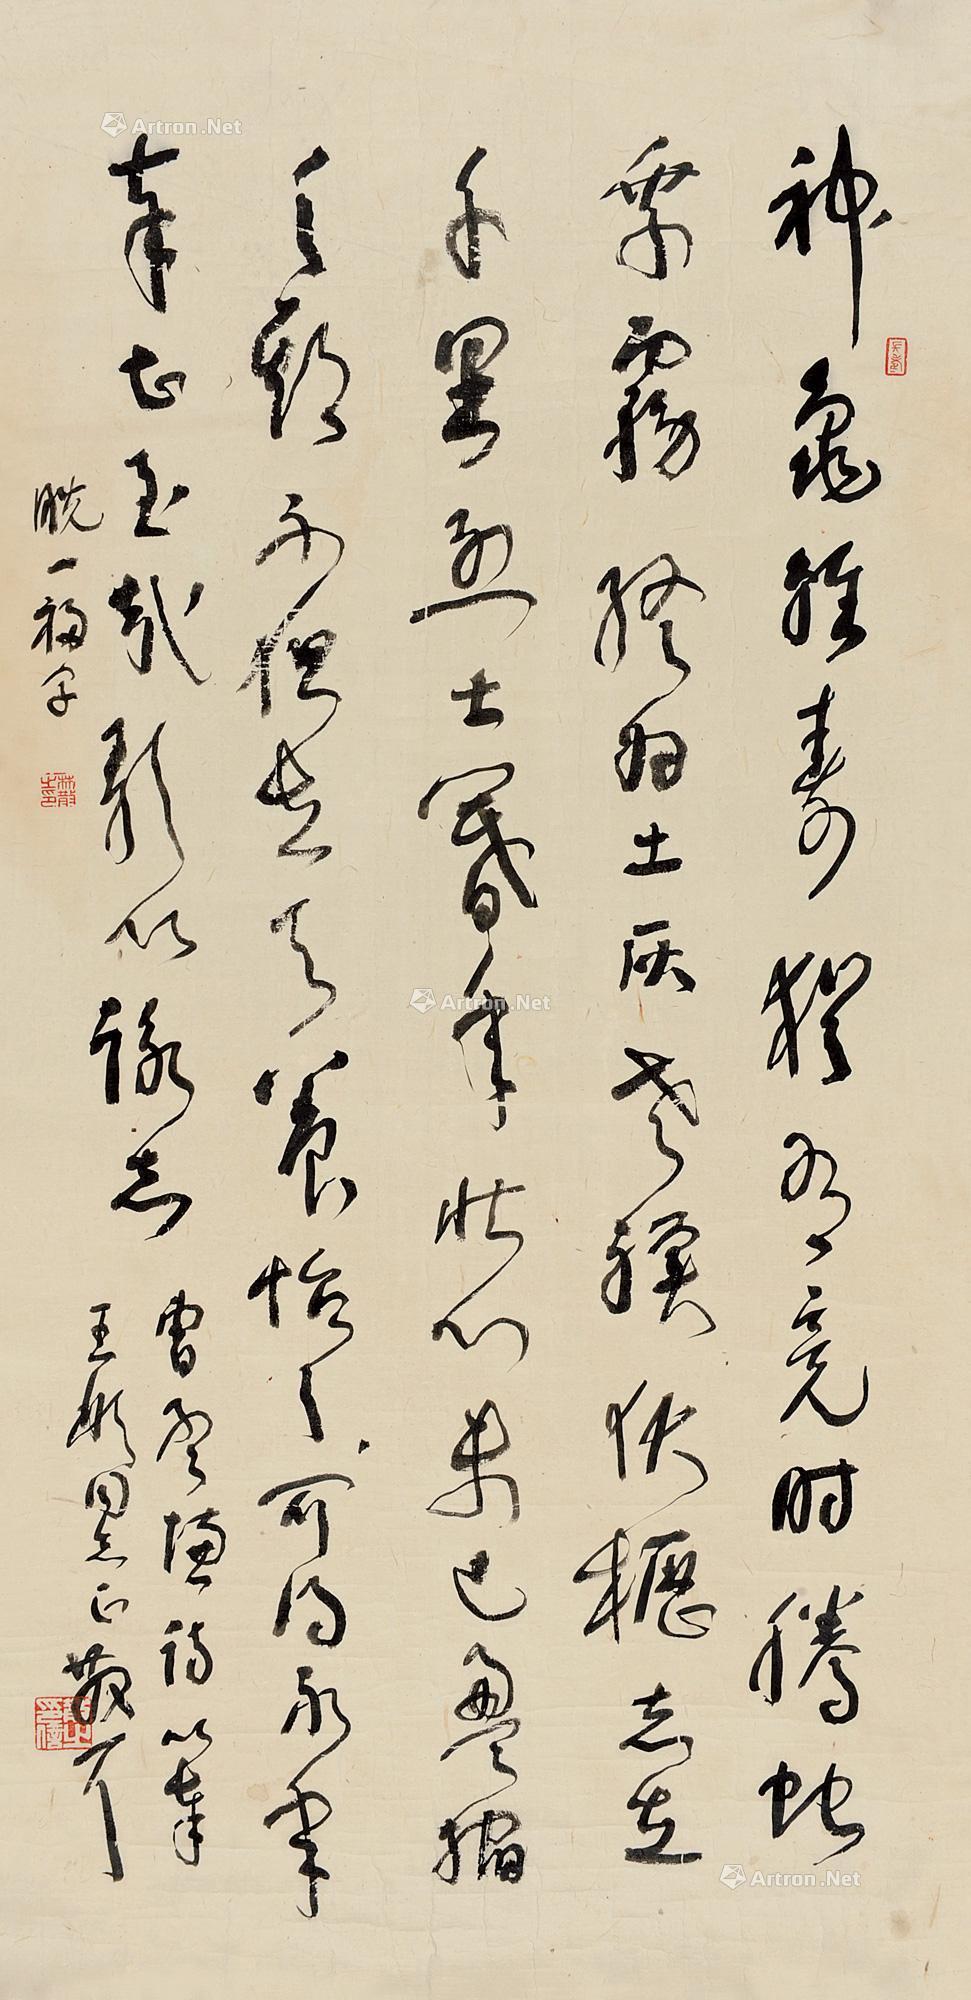 神龜雖壽猶有竟時騰蛇
乘霧終為土灰老驥伏櫪志在
千里烈士暮年壯心未已盈縮
之期不但在天養怡之可得永年
幸甚至哉歌以詠志
曹孟德詩以奉
王同志正散耳
脱一福字
Artron.Net
Artron.Net
Artron.Net